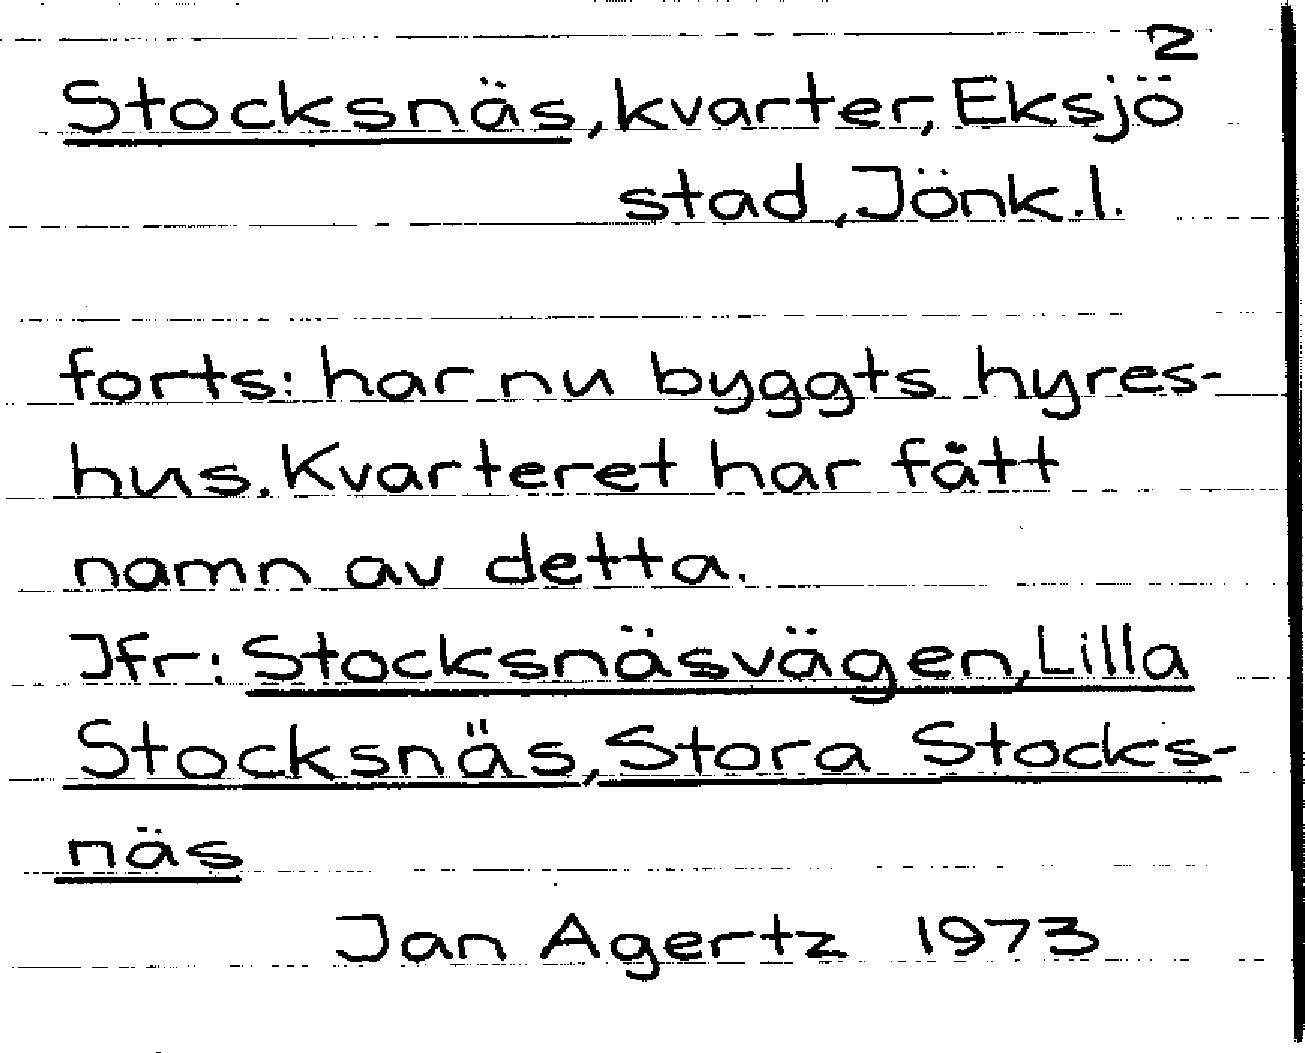 2
Stocksnäs, kvarter, Eksjö
stad, Jönk.l.
forts: har nu byggts hyres-
hus. Kvarteret har fått
namn av detta.
Jfr: Stocksnäsvägen, Lilla
Stocksnäs, Stora Stocks-
näs
Jan Agertz 1973